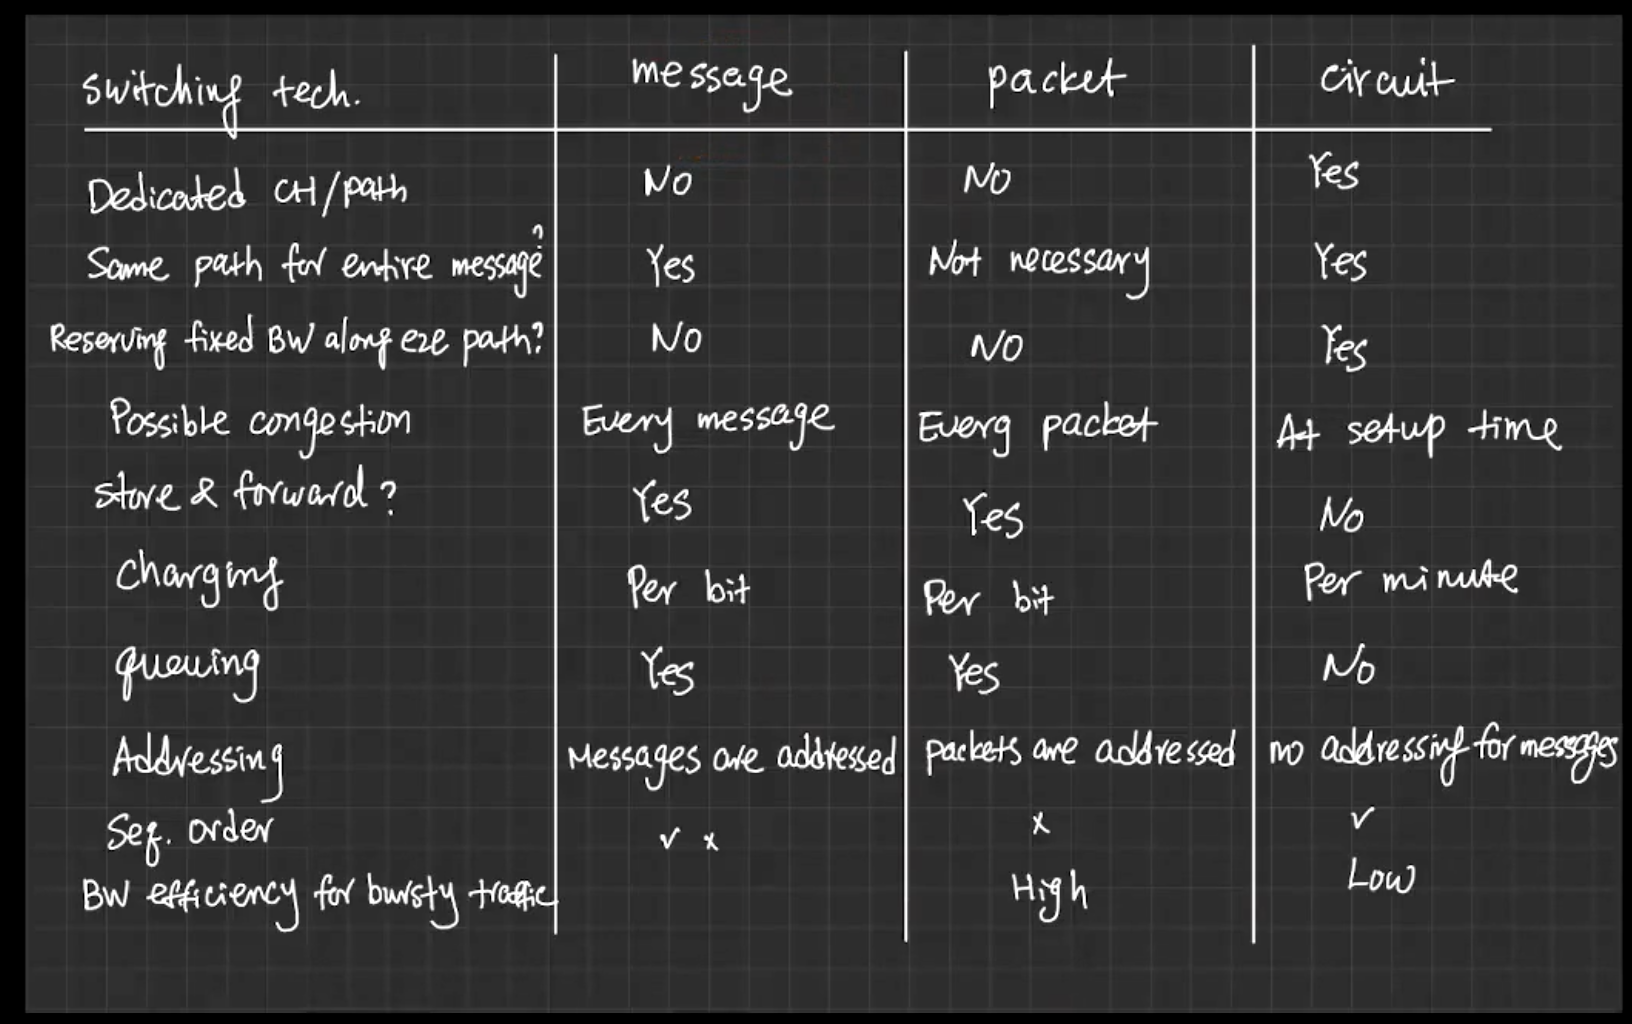 switching tech. message packet circuit
Dedicated CH/path No No Yes
Same path for entire message? Yes Not necessary Yes
Reserving fixed BW along e2e path? No No Yes
Possible congestion Every message Every packet At setup time
store & forward? Yes Yes No
Charging Per bit Per bit Per minute
queuing Yes Yes No
Addressing Messages are addressed packets are addressed no addressing for messages
Seq. order ✓ x x ✓
BW efficiency for bursty traffic High Low